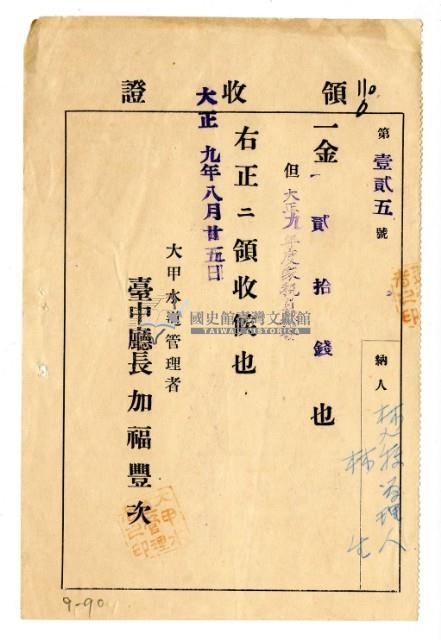 110
領收證
第壹貳五號
一金貳拾錢也
但大正九年度家税
右正ニ領收候也
大正九年八月廿五日
大甲水 管理者
臺中廳長加福豐次
納人
林
管理人
林
國史館臺灣文獻館
TAIWAN HISTORICA
9-90